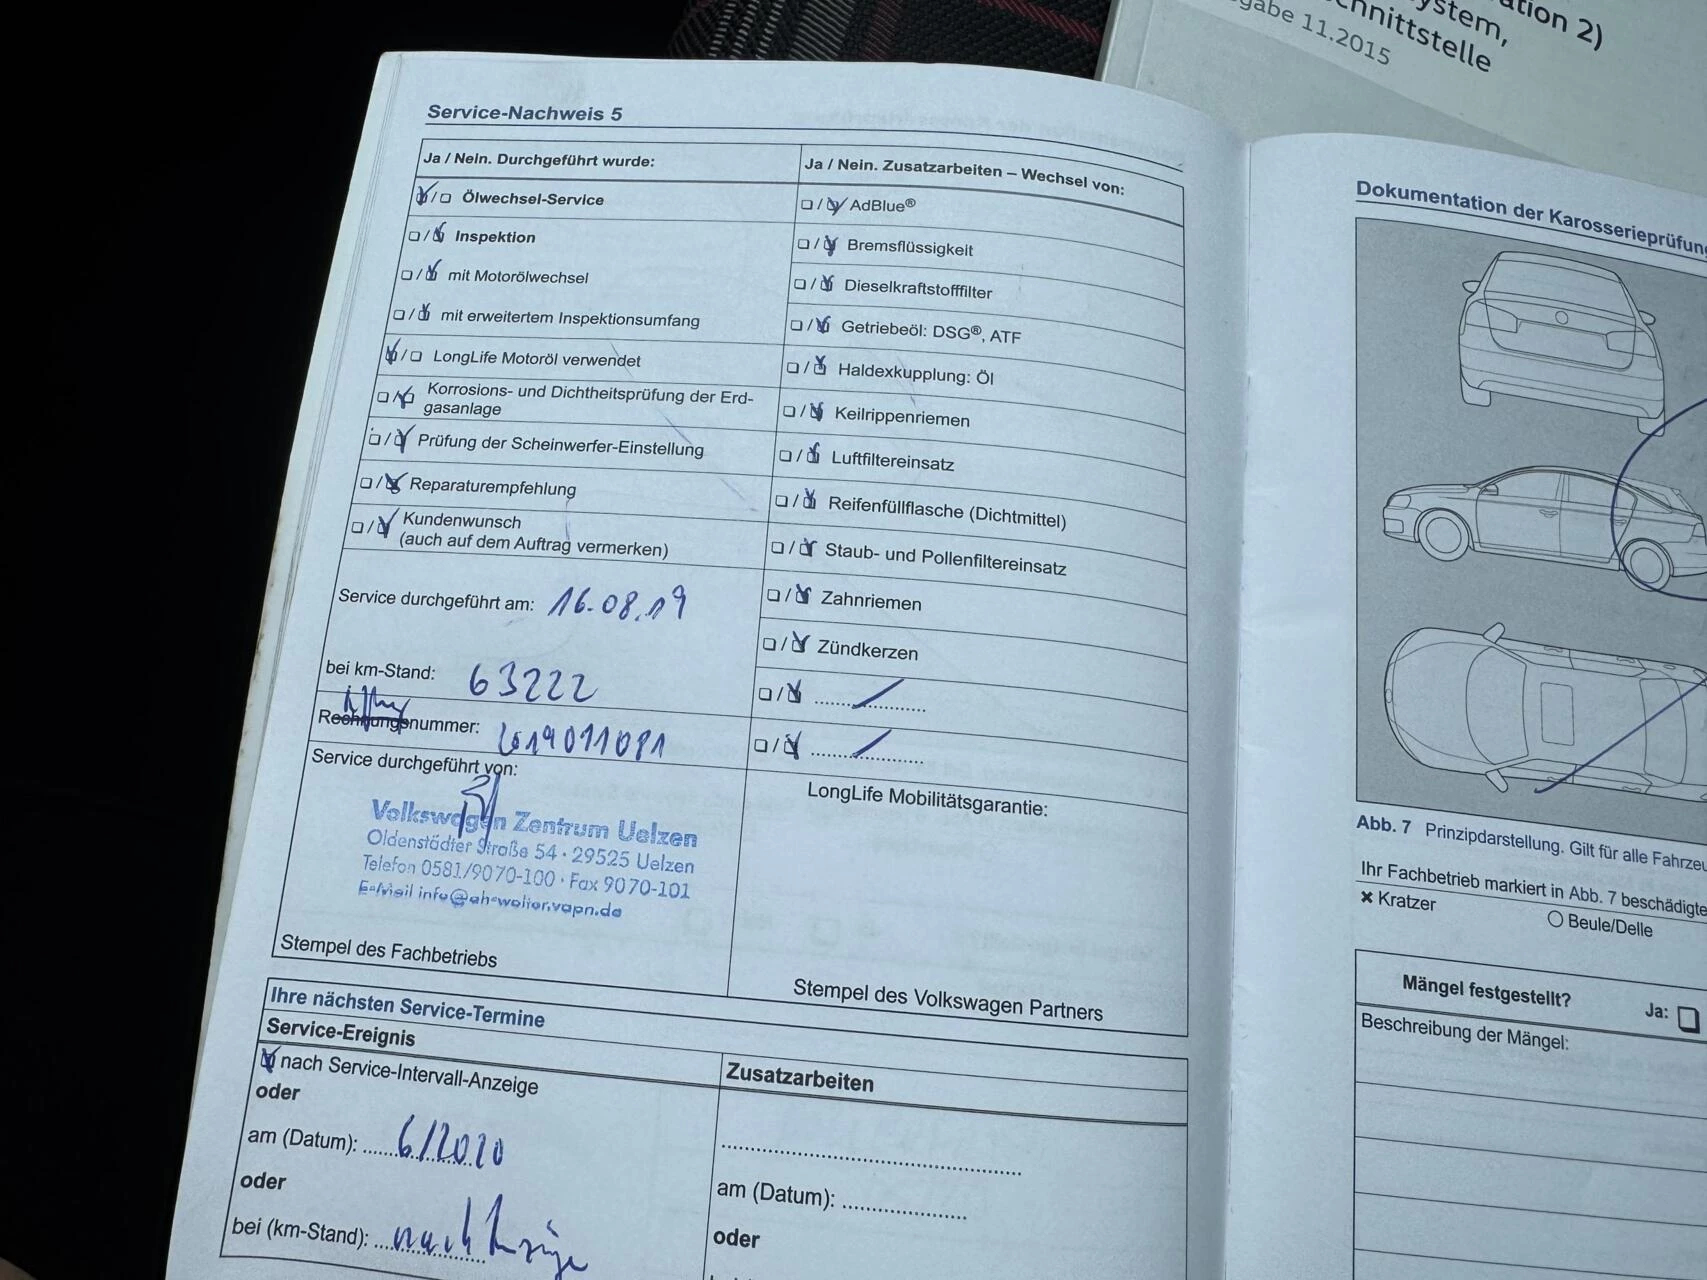 ation 2)
ystem,
chnittstelle
gabe 11.2015
Service-Nachweis 5
Ja / Nein. Durchgeführt wurde:
Ölwechsel-Service
Inspektion
mit Motorölwechsel
mit erweitertem Inspektionsumfang
LongLife Motoröl verwendet
Korrosions- und Dichtheitsprüfung der Erd-
gasanlage
Prüfung der Scheinwerfer-Einstellung
Reparaturempfehlung
Kundenwunsch
(auch auf dem Auftrag vermerken)
Service durchgeführt am: 16.08.19
bei km-Stand: 63222
Rechnungsnummer: 2019011081
Service durchgeführt von:
Volkswagen Zentrum Uelzen
Oldenstädter Straße 54 · 29525 Uelzen
Telefon 0581/9070-100 · Fax 9070-101
E-Mail info@ah-wolter.vapn.de
Stempel des Fachbetriebs
Ja / Nein. Zusatzarbeiten – Wechsel von:
AdBlue®
Bremsflüssigkeit
Dieselkraftstofffilter
Getriebeöl: DSG®, ATF
Haldexkupplung: Öl
Keilrippenriemen
Luftfiltereinsatz
Reifenfüllflasche (Dichtmittel)
Staub- und Pollenfiltereinsatz
Zahnriemen
Zündkerzen
LongLife Mobilitätsgarantie:
Stempel des Volkswagen Partners
Ihre nächsten Service-Termine
Service-Ereignis
nach Service-Intervall-Anzeige
oder
am (Datum): 6/2020
oder
bei (km-Stand): nach Anzeige
Zusatzarbeiten
am (Datum):
oder
Dokumentation der Karosserieprüfung
Abb. 7 Prinzipdarstellung. Gilt für alle Fahrzeu
Ihr Fachbetrieb markiert in Abb. 7 beschädigte
Kratzer
Beule/Delle
Mängel festgestellt? Ja:
Beschreibung der Mängel: